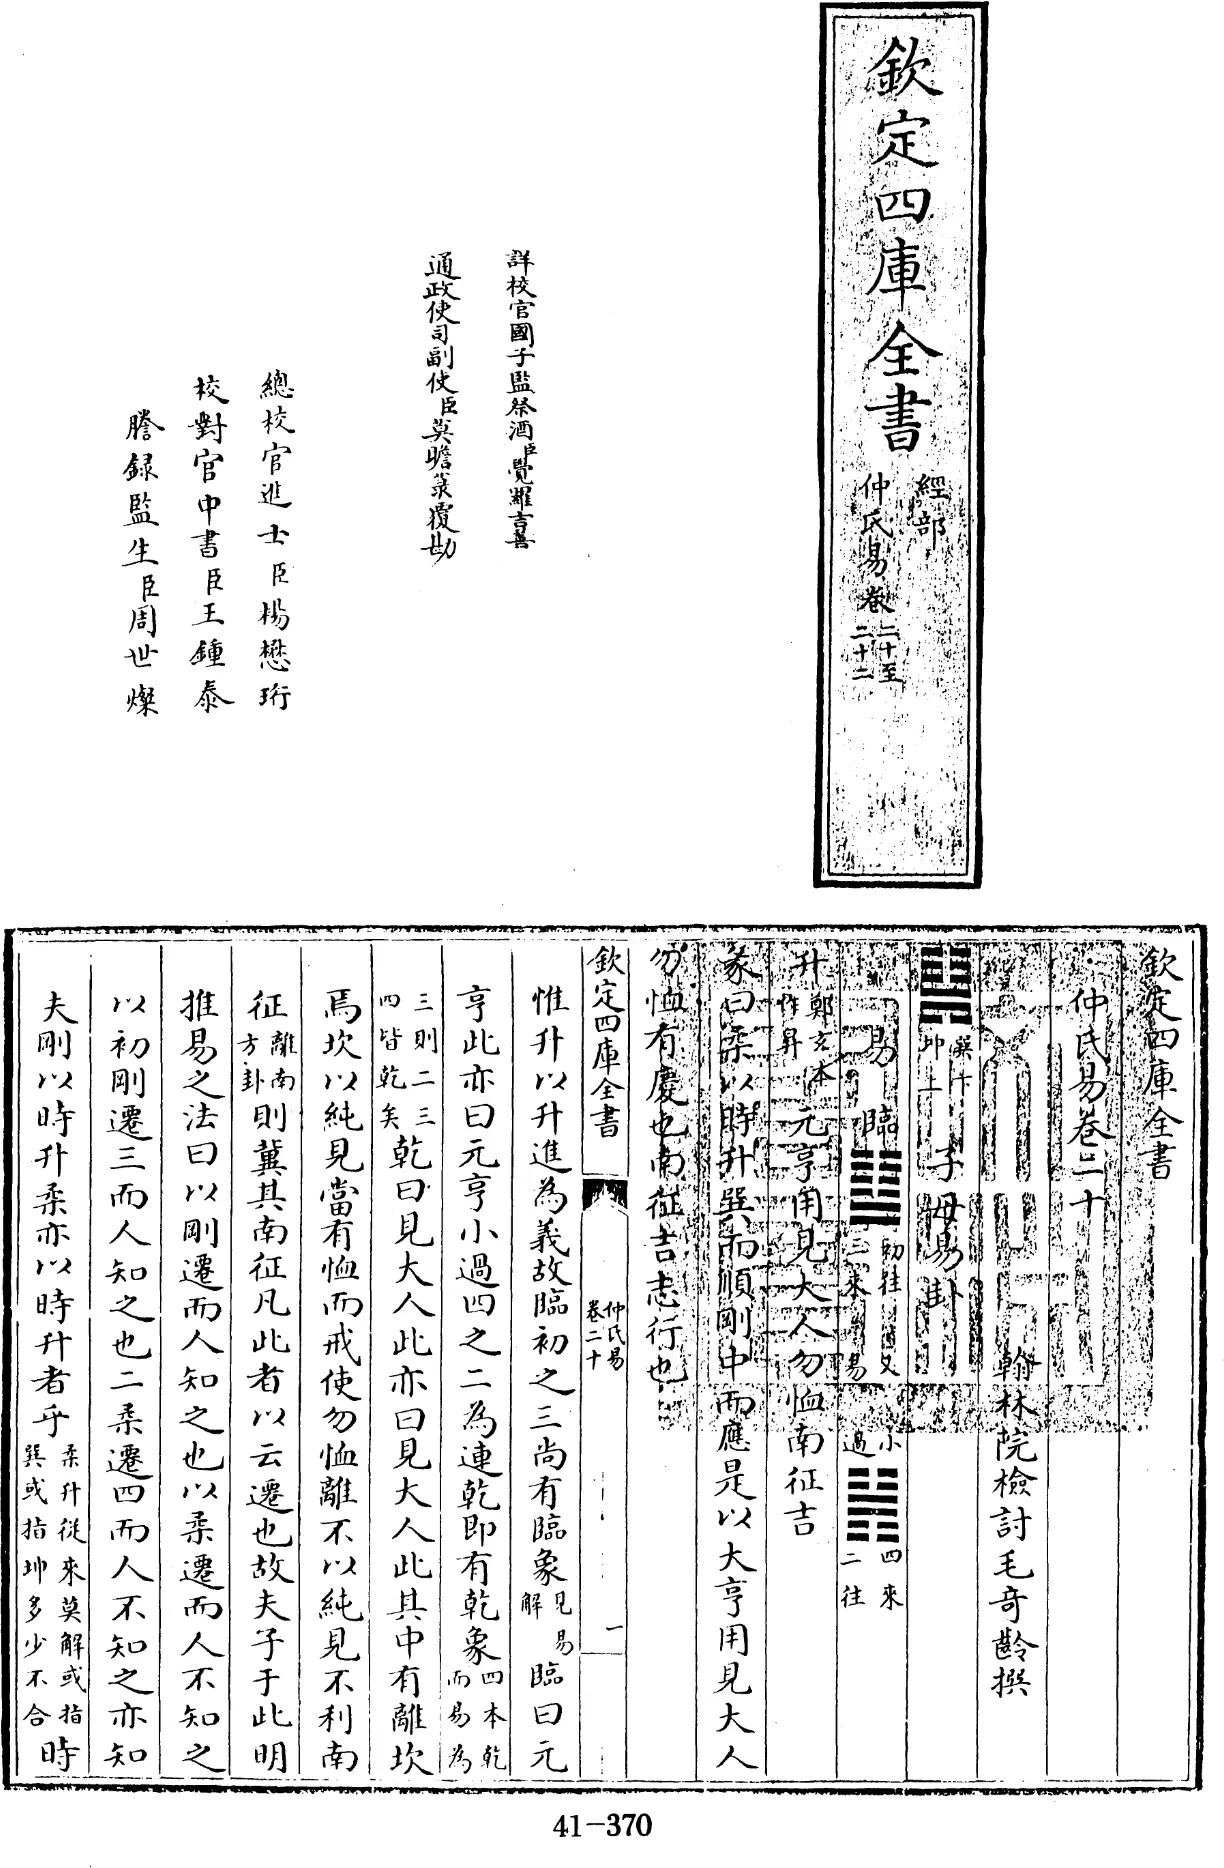 欽定四庫全書
經部
仲氏易卷二十至二十二
詳校官國子監祭酒臣覺羅吉善
通政使司副使臣莫瞻菉覆勘
總校官進士臣楊懋珩
校對官中書臣王鍾泰
謄錄監生臣周世燦
欽定四庫全書
仲氏易卷二十
翰林院檢討毛奇齡撰
䷭巽下坤上 子母易卦
易 臨䷒初往三來 又易小過䷽四來二往
升鄭玄本作昇元亨用見大人勿恤南征吉
彖曰柔以時升巽而順剛中而應是以大亨用見大人
勿恤有慶也南征吉志行也
欽定四庫全書 仲氏易卷二十 一
惟升以升進為義故臨初之三尚有臨象見易解臨曰元
亨此亦曰元亨小過四之二為連乾即有乾象四本乾而易為乾
三則二三四皆乾矣乾曰見大人此亦曰見大人此其中有離坎
焉坎以純見當有恤而戒使勿恤離不以純見不利南
征離南方卦則冀其南征凡此者以云遷也故夫子于此明
推易之法曰以剛遷而人知之也以柔遷而人不知之
以初剛遷三而人知之也二柔遷四而人不知之亦知
夫剛以時升柔亦以時升者乎柔升從來莫解或指巽或指坤多少不合時
41-370